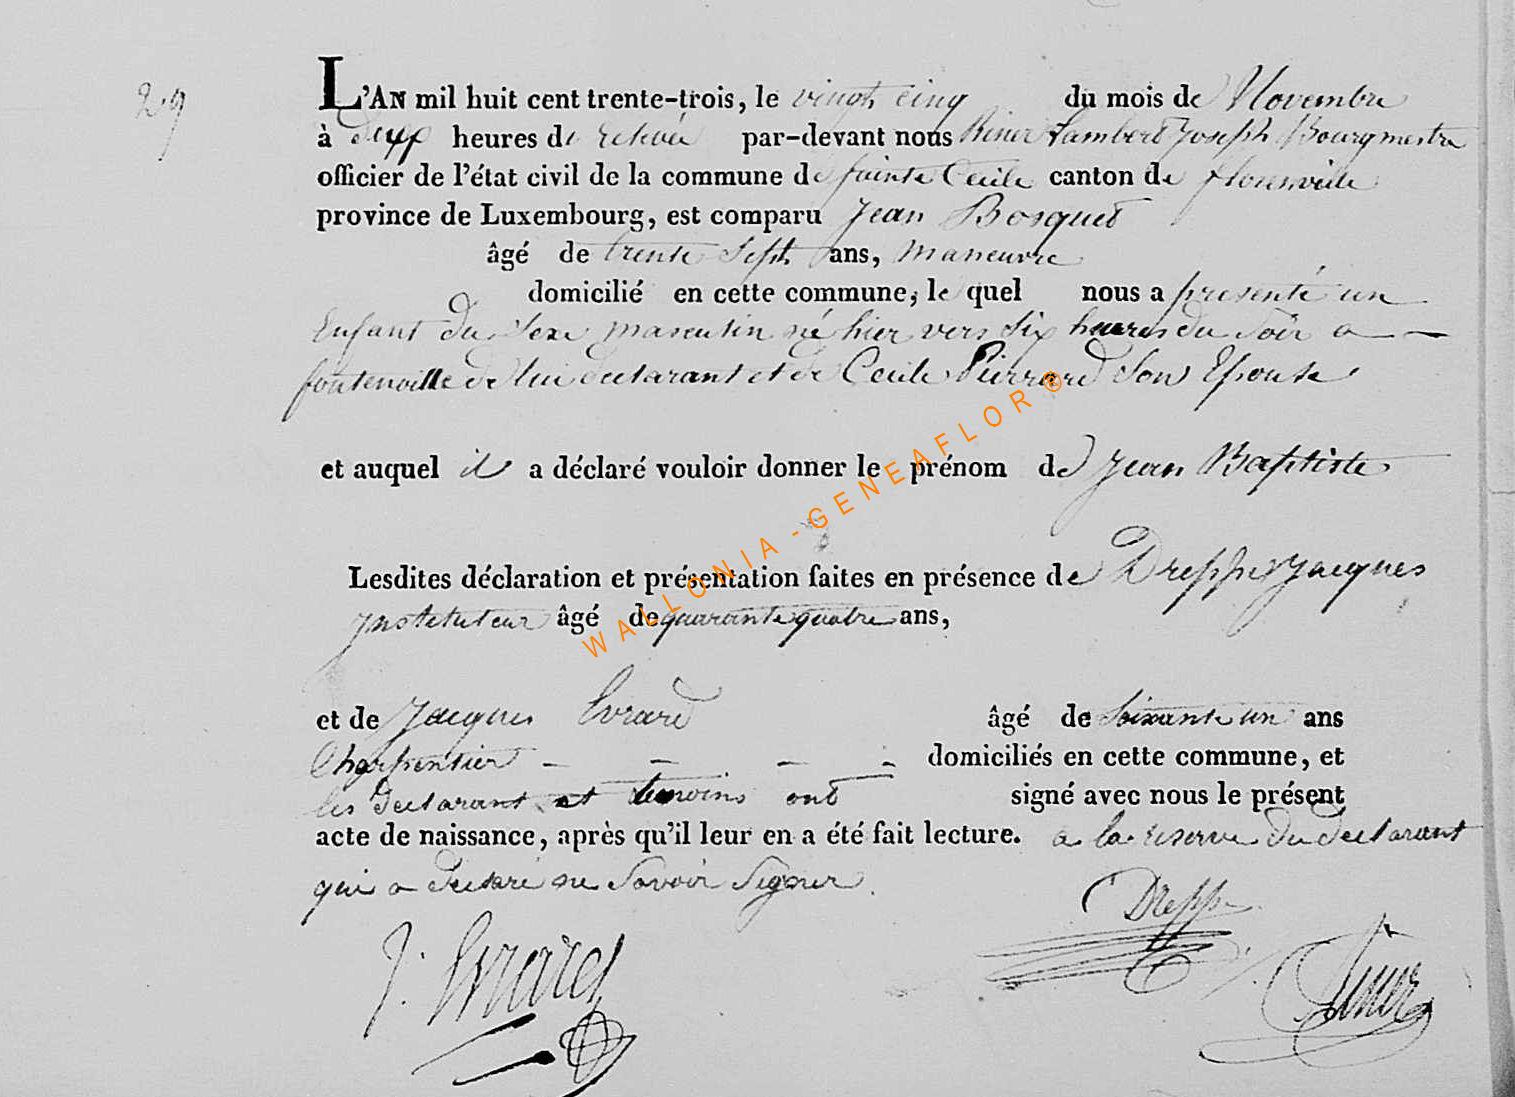 29
L'AN mil huit cent trente-trois, le vingt cinq du mois de Novembre
à deux heures de relevée par-devant nous Riner Lambert Joseph Bourgmestre
officier de l'état civil de la commune de sainte Cecile canton de florenville
province de Luxembourg, est comparu Jean Bosquet
âgé de trente Sept ans, maneuvre
domicilié en cette commune, le quel nous a presenté un
Enfant du Sexe masculin né hier vers Six heures du Soir a
fontenoille de lui declarant et de Cecile Pierrard Son Epouse
et auquel il a déclaré vouloir donner le prénom de Jean Baptiste
Lesdites déclaration et présentation faites en présence de Dreppe Jacques
Instituteur âgé de quarante quatre ans,
et de Jacques Evrard âgé de Soixante un ans
Charpentier domiciliés en cette commune, et
les declarant et temoins ont signé avec nous le présent
acte de naissance, après qu'il leur en a été fait lecture. a la reserve du declarant
qui a declaré ne Savoir Signer.
J. Evrard Dreppe Riner
WALLONIA-GENEAFLOR®